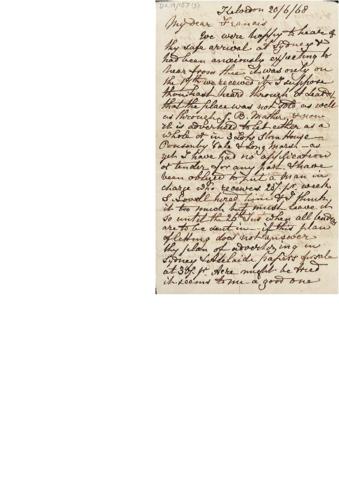 Kelvedon 20/6/68
My dear Francis
We were happy to hear of
thy safe arrival at Sydney &
had been anxiously expecting to
hear from thee it was only on
the 19th we received it I suppose
thou hast heard through
that the place was not sold as well
as through J. B. Mather, & now
it is advertised to let either as a
whole or in 3 lots Slone House
Ponsonby Vale & Long marsh - as
yet I have had no application
or tender for any part I have
been obliged to put a man in
charge who receives 25/ pr week
S. Lovell hired him & I think
it too much but must leave it
so until the 26 Inst when all tenders
are to be sent in - if this plan
of letting does not answer
thy plan of advertizing in
Sydney & Adelaide papers for sale
at 30/ pr Acre might be tried
it seems to me a good one